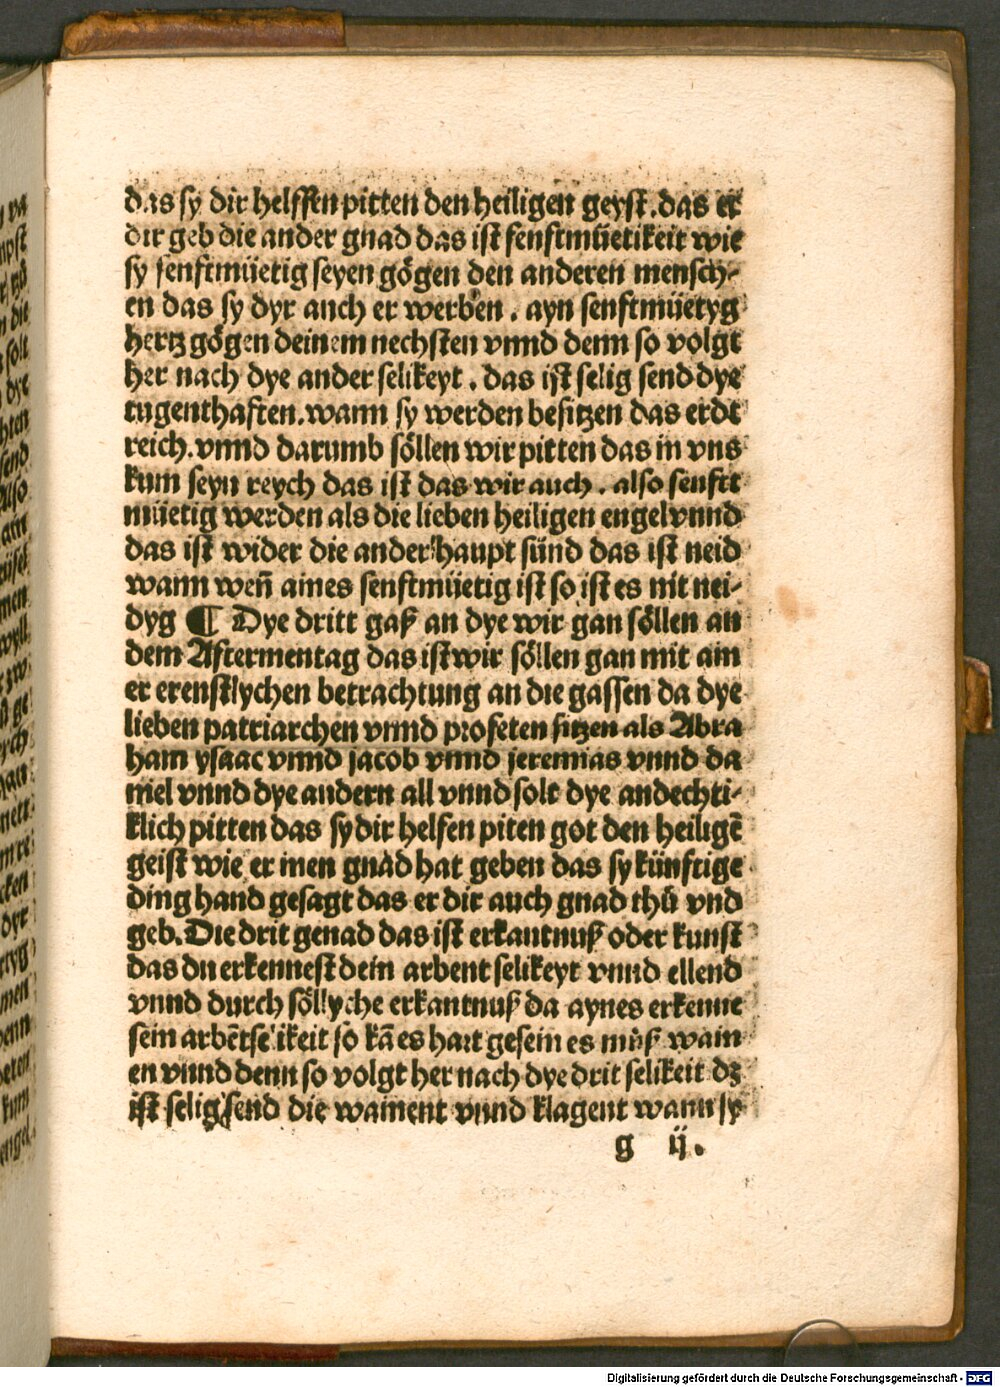 das sy dir helffen pitten den heiligen geyst. das er
dir geb die ander gnad das ist senftmüetikeit wie
sy senftmüetig seyen gögen den anderen mensch⸗
en das sy dyr auch er werben . ayn senftmüetyg
hertz gögen deinem nechsten vnnd denn so volgt
her nach dye ander selikeyt . das ist selig send dye
tugenthaften. wann sy werden besitzen das erdt
reich. vnnd darumb söllen wir pitten das in vns
kum seyn reych das ist das wir auch . also senftt
müetig werden als die lieben heiligen engel vnnd
das ist wider die ander haupt sünd das ist neid
wann weñ aines senftmüetig ist so ist es nit nei⸗
dyg ¶ Dye dritt gaß an dye wir gan söllen an
dem Aftermentag das ist wir söllen gan mit ain
er erenstlychen betrachtung an die gassen da dye
lieben patriarchen vnnd profeten sitzen als Abra
ham ysaac vnnd jacob vnnd jeremias vnnd da
niel vnnd dye andern all vnnd solt dye andechti⸗
klich pitten das sy dir helfen piten got den heiligē
geist wie er inen gnad hat geben das sy künftige
ding hand gesagt das er dir auch gnad thů vnd
geb. Die drit genad das ist erkantnuß oder kunst
das du erkennest dein arbent selikeyt vnnd ellend
vnnd durch söllyche erkantnuß da aynes erkenne
sein arbētselikeit so kā es hart gesein es můß wain
en vnnd denn so volgt her nach dye drit selikeit dz
ist selig send die wainent vnnd klagent wann sy
g ij.
Digitalisierung gefördert durch die Deutsche Forschungsgemeinschaft - DFG